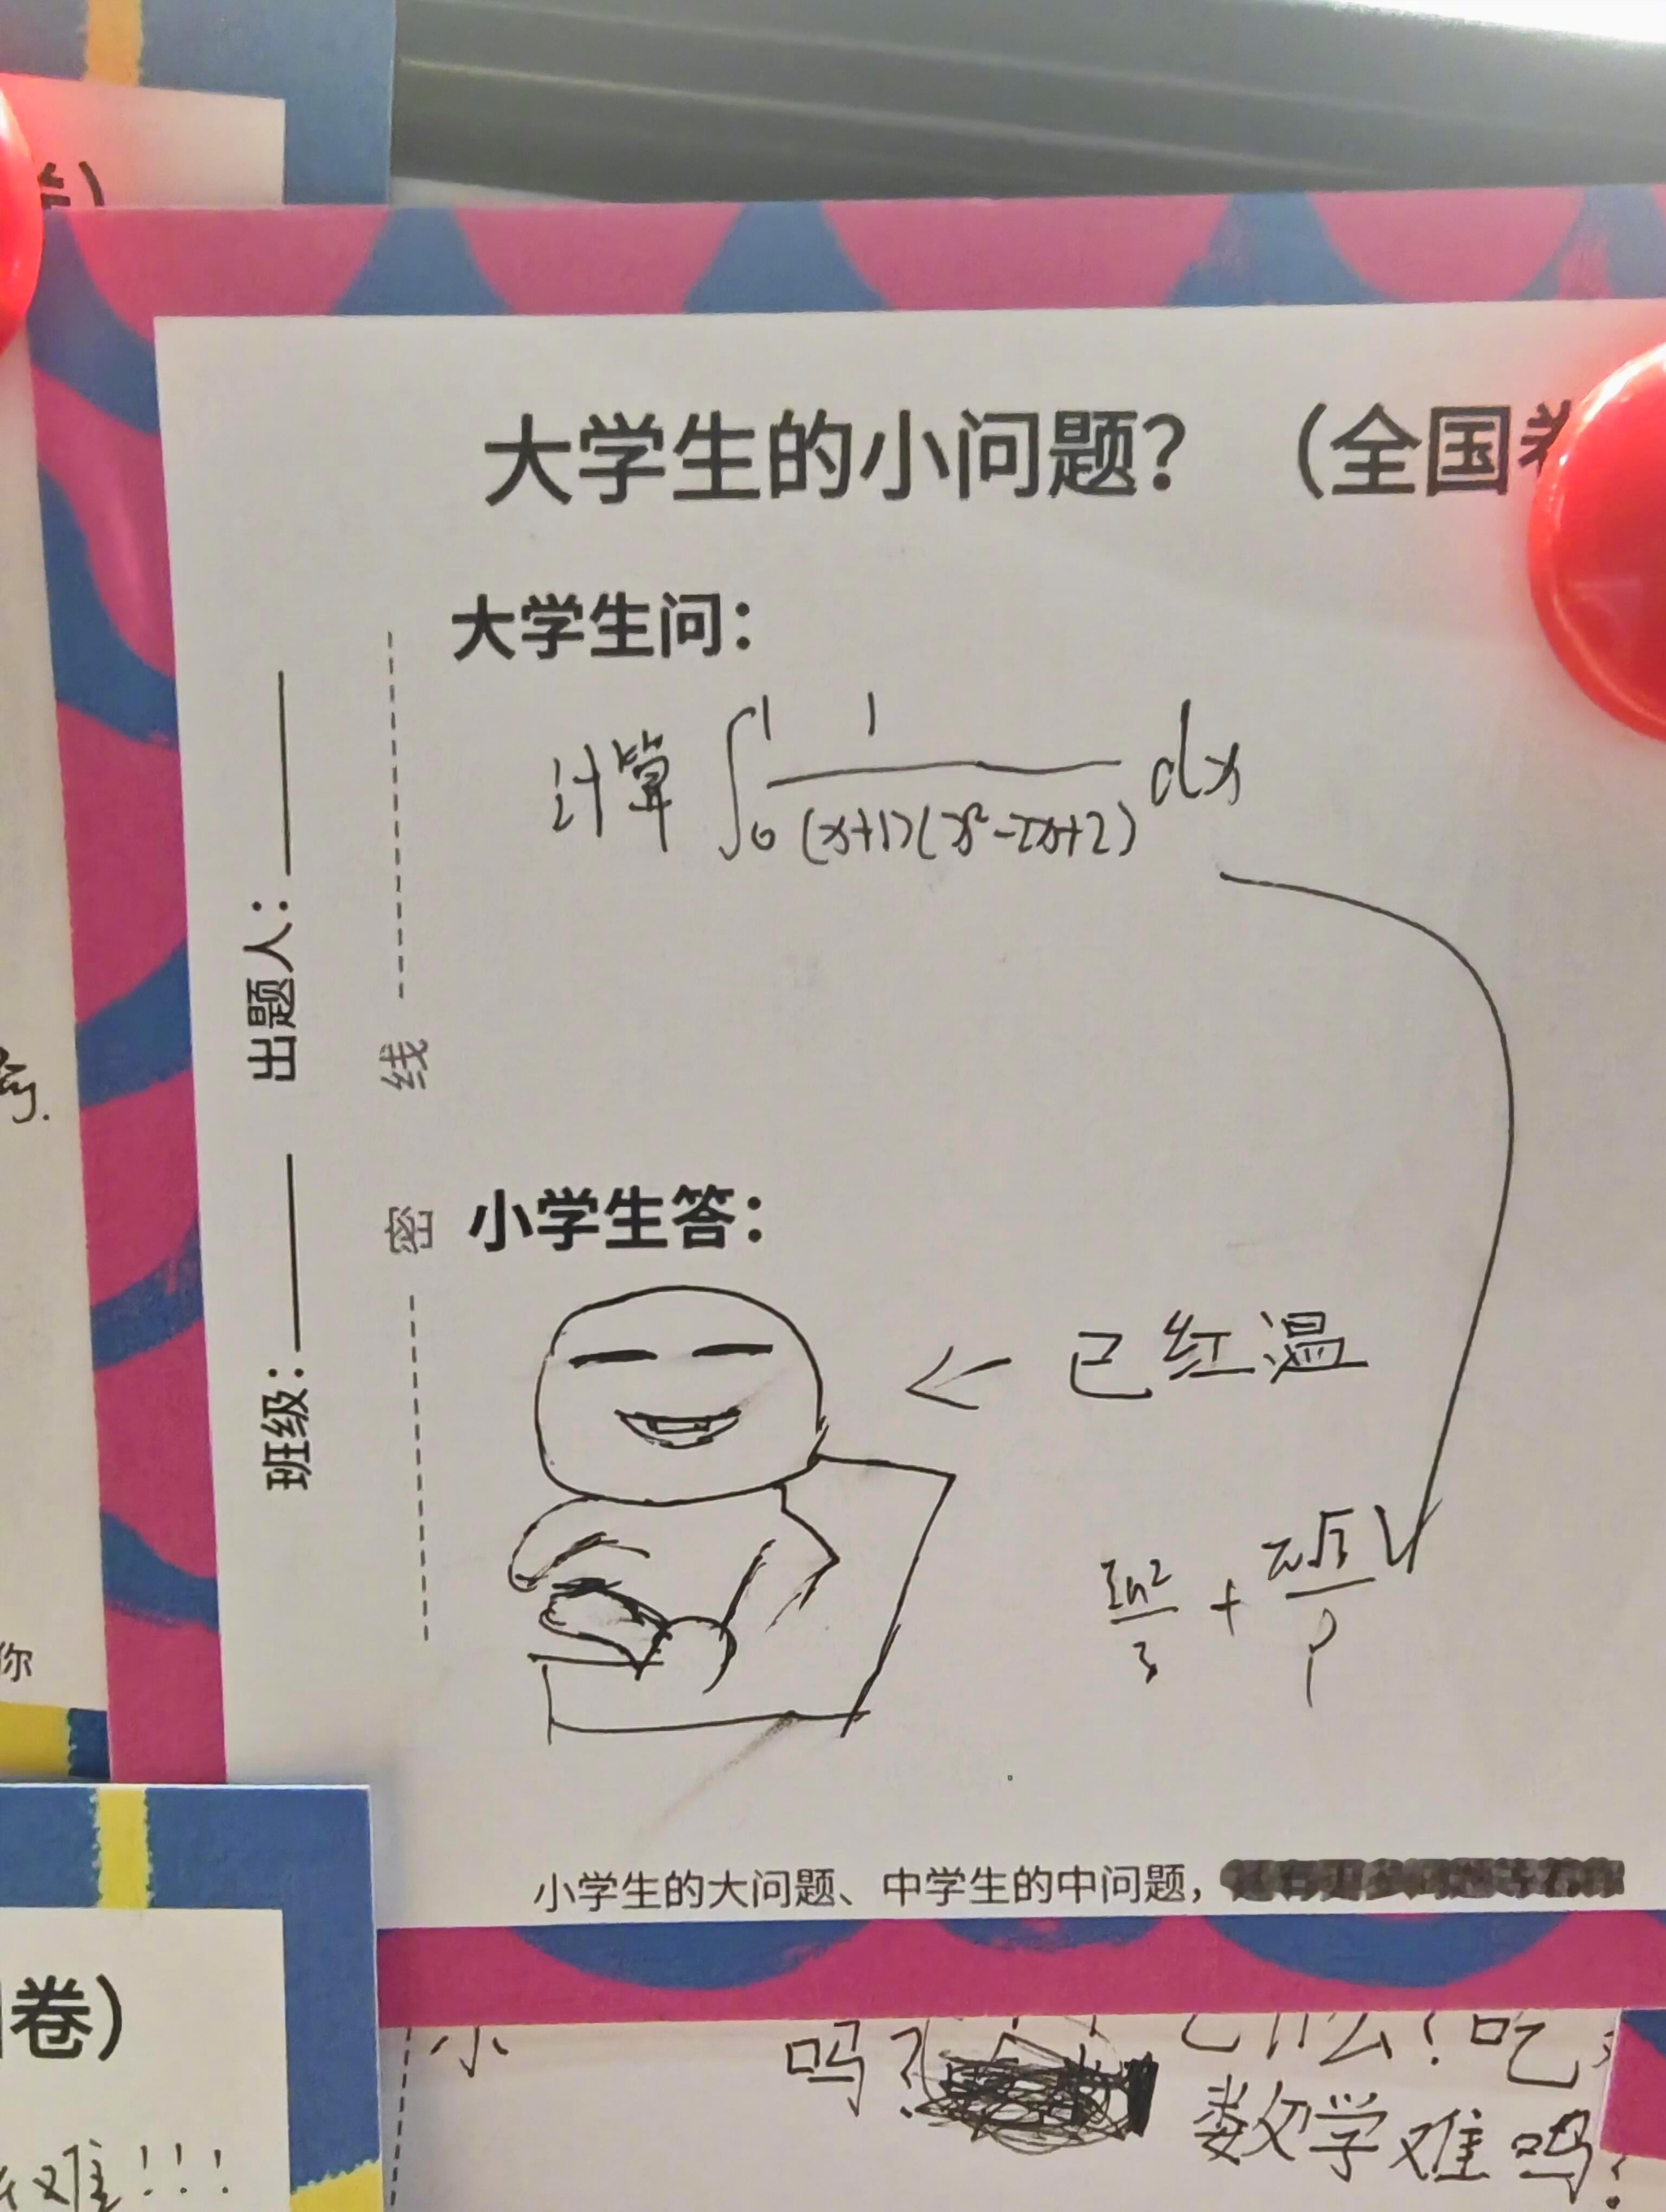 大学生的小问题？（全国卷
大学生问：
计算 ∫₀¹ 1/((x+1)(x²-2x+2)) dx
出题人：
班级：
线
密
小学生答：
← 已红温
ln2/3 + π√3/9
小学生的大问题、中学生的中问题，
你
卷）
难!!!
小
吗？
什么？吃
数学难吗？